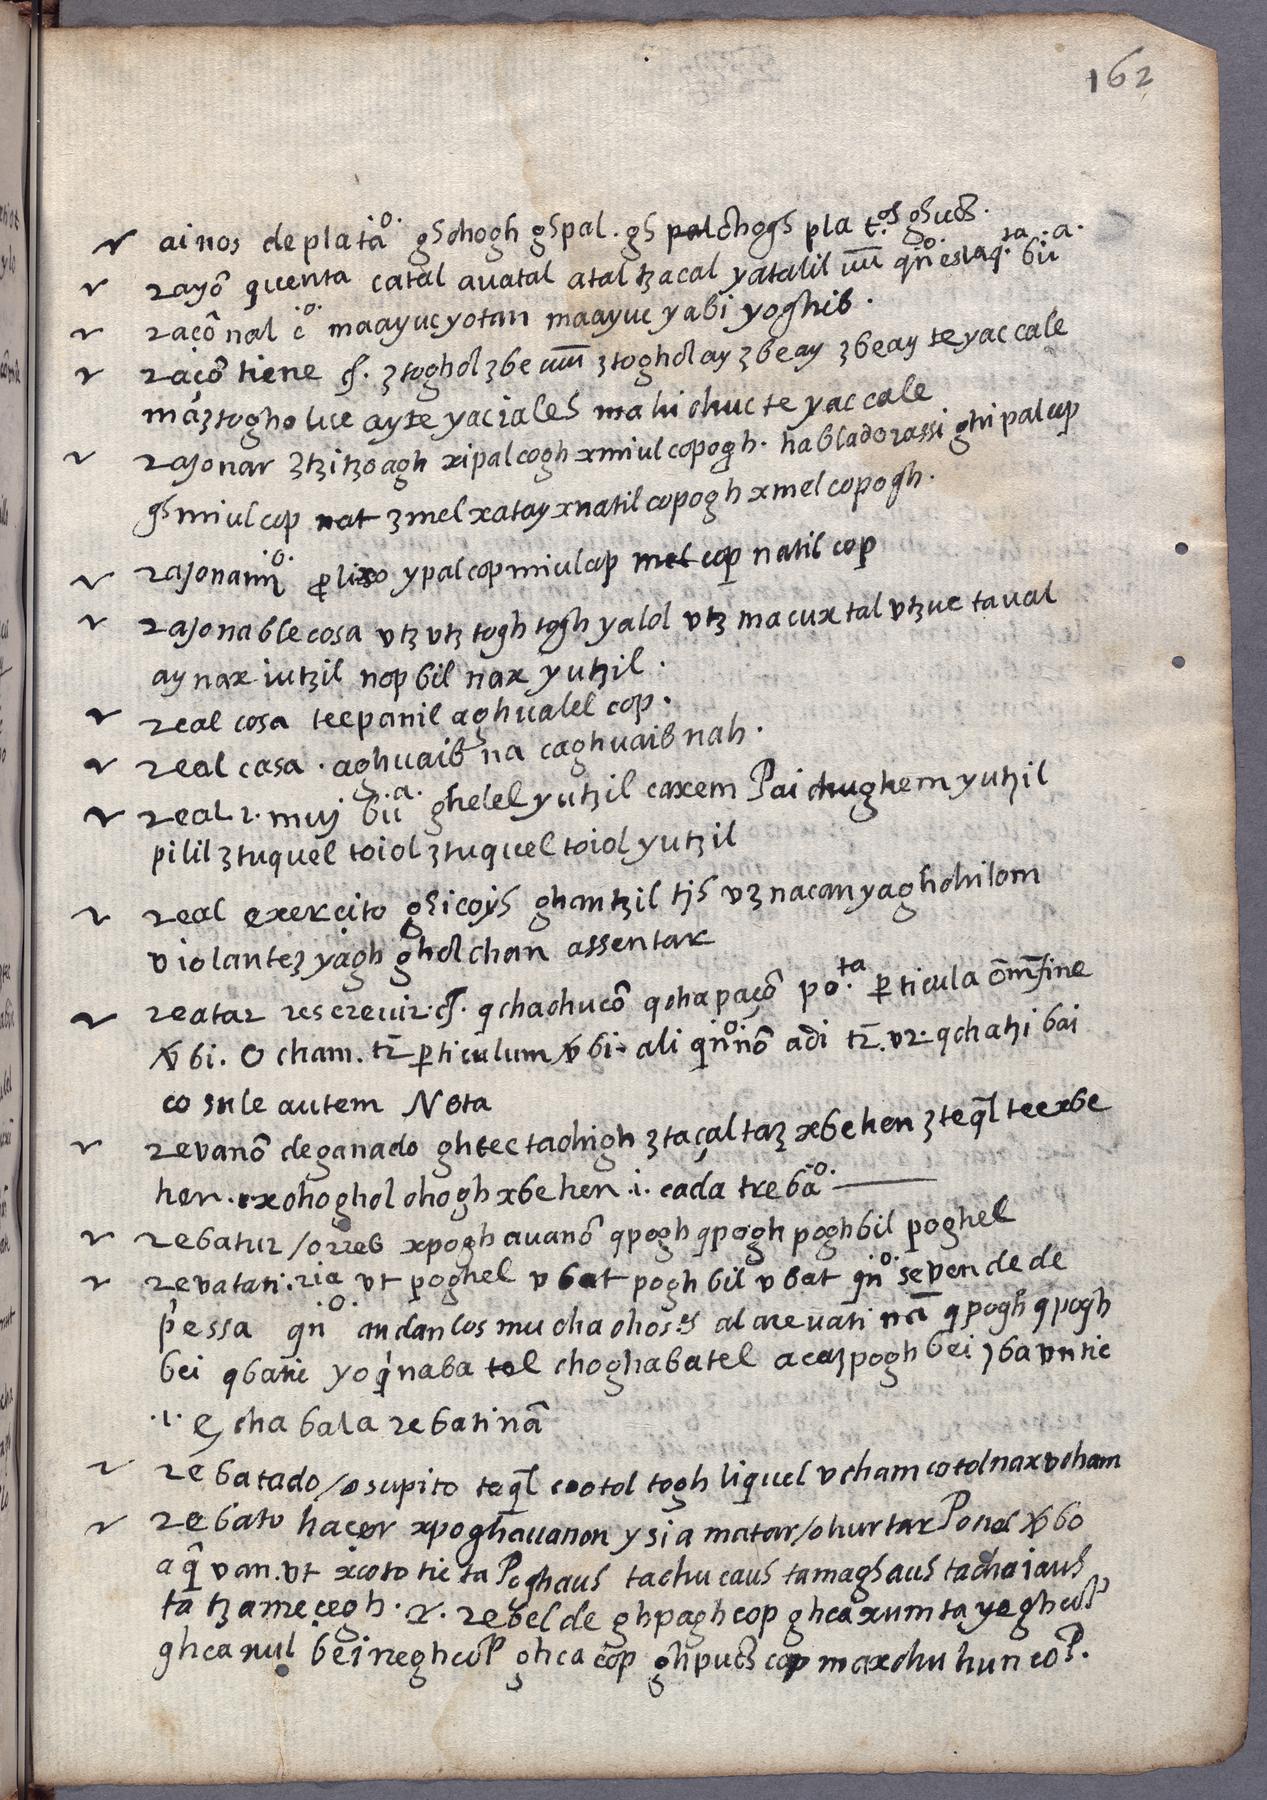 162
r ainos de plata^o. ghchogh ghpal. gh chogh pla t.os ghuch.
r rayō quenta catal auatal atal tzacal yatalil uū qn^o. eslaq.ta bīi.a.
r raçō nal c^o. maayuc yotan maayuc yabi yoghib.
r raçō tiene ztoghol zbe uū ztoghol ay zbeay zbeay te yac cale
maztogho luc ayte yaciales mahi chuc te yac cale
r rajonar ztzitzoagh xipalcogh xmiul copogh. habladorassi ghipalcop
ghmiulcop nat zmel xatay xnatil copogh xmel copogh.
r rajonami^o. plixo ypalcop miulcop mel cop natil cop
r rajonable cosa vtz vtz togh togh yalol vtz macux tal vtzuc taual
aynax iutzil nop bil nax yutzil.
r real cosa teepanil aghualel cop.
r real casa. aghuaib na caghuaib nah.
r real r. muj bīi.a. ghelel yutzil caxem Pai chughem yutzil
pilil ztuquel toiol ztuquel toiol yutzil
r real exercito ghicojs ghantzil tjs vz nacan yaghchilom
violantez yagh ghol chan assentar
r reatar rescreuir. qchachucō qchapaçō po.ta perticula ōm fine
bi. O cham. tr̄ perticulum bi. ali qn^o. nō adi tr̄. vr. qchatzi bai
co snle autem Nota
r revanō de ganado ghtectachigh ztaçaltaz xbehen zteql̄ teexbe
hen. rxchoghol chogh xbehen .i. cada trebā^o.
r rebatir / o rreb xpogh auanō qpogh qpogh poghbil poghel
r revatan. ria vt poghel vbat pogh bil vbat qn^o. se vende de
pessa qn^o. andan los muchachos al arrevatinā qpogh qpogh
bei qbatic yo qnaba tel choghabatel acazpogh bei zba vntic
.i. cha bala rebatinā
r rebatado / o supito teql̄ cootol togh liquel vcham cotolnax vcham
r rebato hacer xpoghauanon y si a matar / o hurtar Pona bo
aq̄ van. vt xcoto tic ta Poghaus tachucaus tamaghaus tachaiaus
ta tzamecegh. r. rebelde ghpaghcop ghcaxumta yeghcop
ghcanul beineghcop ghca cop ghpuch cop maxchuhuncop.